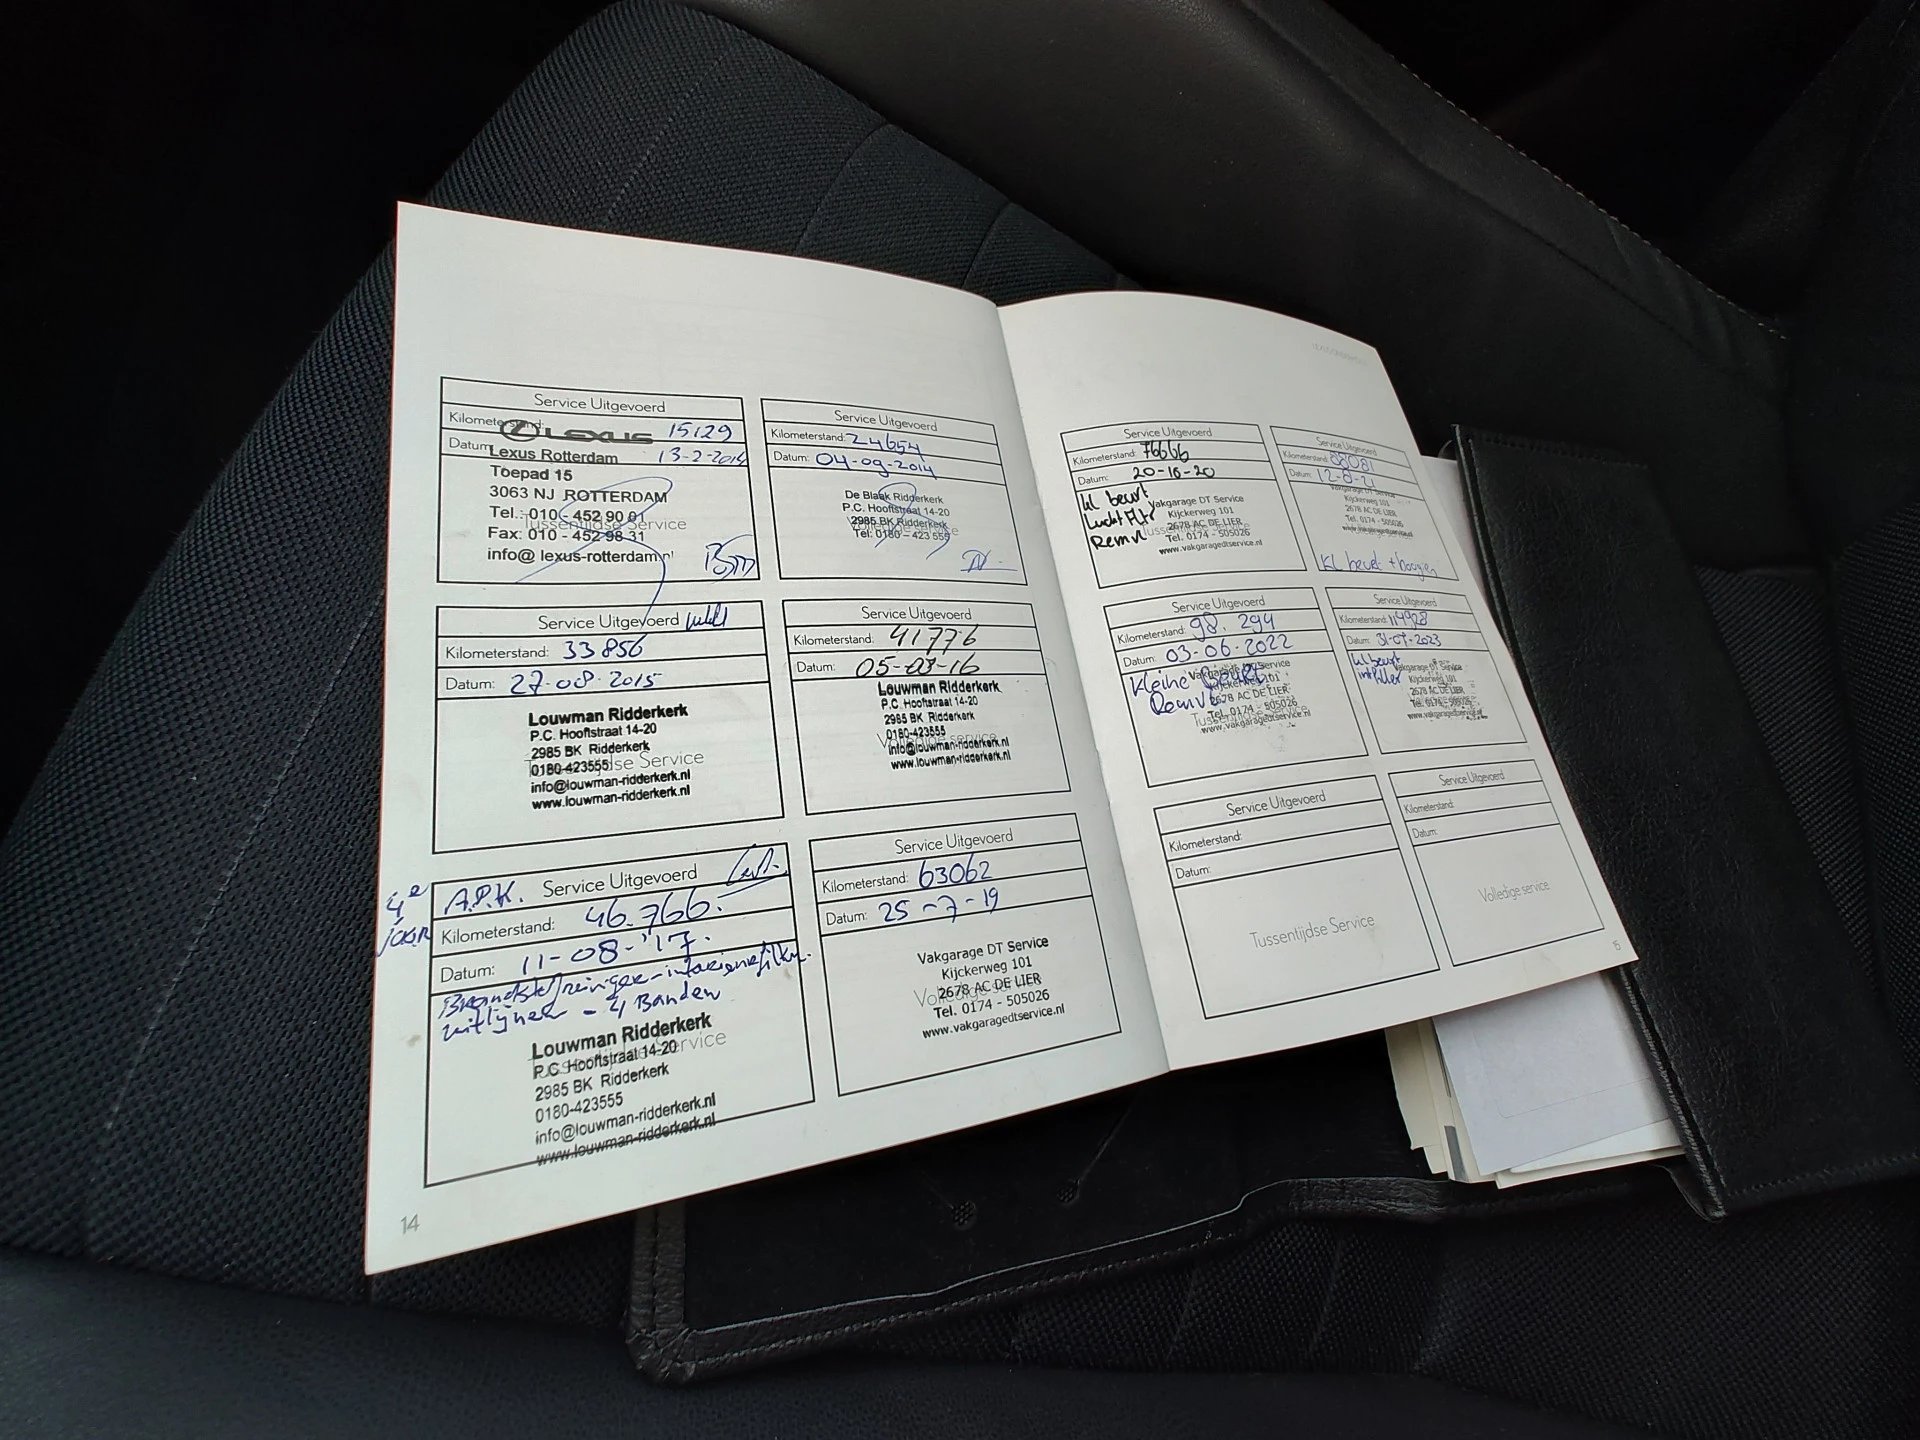 Service Uitgevoerd
Kilometerstand: 15129
LEXUS
Datum: 13-2-2014
Lexus Rotterdam
Toepad 15
3063 NJ ROTTERDAM
Tel.: 010 - 452 90 01
Tussentijdse Service
Fax: 010 - 452 98 31
info@ lexus-rotterdam.nl
Service Uitgevoerd
Kilometerstand: 24654
Datum: 04-09-2014
De Blaak Ridderkerk
P.C. Hooftstraat 14-20
2985 BK Ridderkerk
Volledige service
Tel: 0180 - 423 555
Service Uitgevoerd
Kilometerstand: 33856
Datum: 27-08-2015
Louwman Ridderkerk
P.C. Hooftstraat 14-20
2985 BK Ridderkerk
Tussentijdse Service
0180-423555
info@louwman-ridderkerk.nl
www.louwman-ridderkerk.nl
Service Uitgevoerd
Kilometerstand: 41776
Datum: 05-08-16
Louwman Ridderkerk
P.C. Hooftstraat 14-20
2985 BK Ridderkerk
0180-423555
Volledige service
info@louwman-ridderkerk.nl
www.louwman-ridderkerk.nl
4e
JAAR
A.P.K. Service Uitgevoerd
Kilometerstand: 46.766.
Datum: 11-08-'17.
Brandstofreiniger-interieurfilter.
uitlijnen - 4 Banden
Louwman Ridderkerk
P.C. Hooftstraat 14-20
Tussentijdse Service
2985 BK Ridderkerk
0180-423555
info@louwman-ridderkerk.nl
www.louwman-ridderkerk.nl
Service Uitgevoerd
Kilometerstand: 63062
Datum: 25-7-19
Vakgarage DT Service
Kijckerweg 101
2678 AC DE LIER
Volledige service
Tel. 0174 - 505026
www.vakgaragedtservice.nl
14
Service Uitgevoerd
Kilometerstand: 76666
Datum: 20-10-20
kl beurt
Lucht Filtr
Remvl
Vakgarage DT Service
Kijckerweg 101
2678 AC DE LIER
Tussentijdse Service
Tel. 0174 - 505026
www.vakgaragedtservice.nl
Service Uitgevoerd
Kilometerstand: 88081
Datum:
Vakgarage DT Service
Kijckerweg 101
2678 AC DE LIER
Tel. 0174 - 505026
www.vakgaragedtservice.nl
kl beurt + bougies
Service Uitgevoerd
Kilometerstand: 98.294
Datum: 03-06-2022
Kleine beurt
Remvl
Vakgarage DT Service
Kijckerweg 101
2678 AC DE LIER
Tel. 0174 - 505026
Tussentijdse Service
www.vakgaragedtservice.nl
Service Uitgevoerd
Kilometerstand: 114928
Datum: 31-07-2023
kl beurt
int filter
Vakgarage DT Service
Kijckerweg 101
2678 AC DE LIER
Tel. 0174 - 505026
www.vakgaragedtservice.nl
Service Uitgevoerd
Kilometerstand:
Datum:
Tussentijdse Service
Service Uitgevoerd
Kilometerstand:
Datum:
Volledige service
15